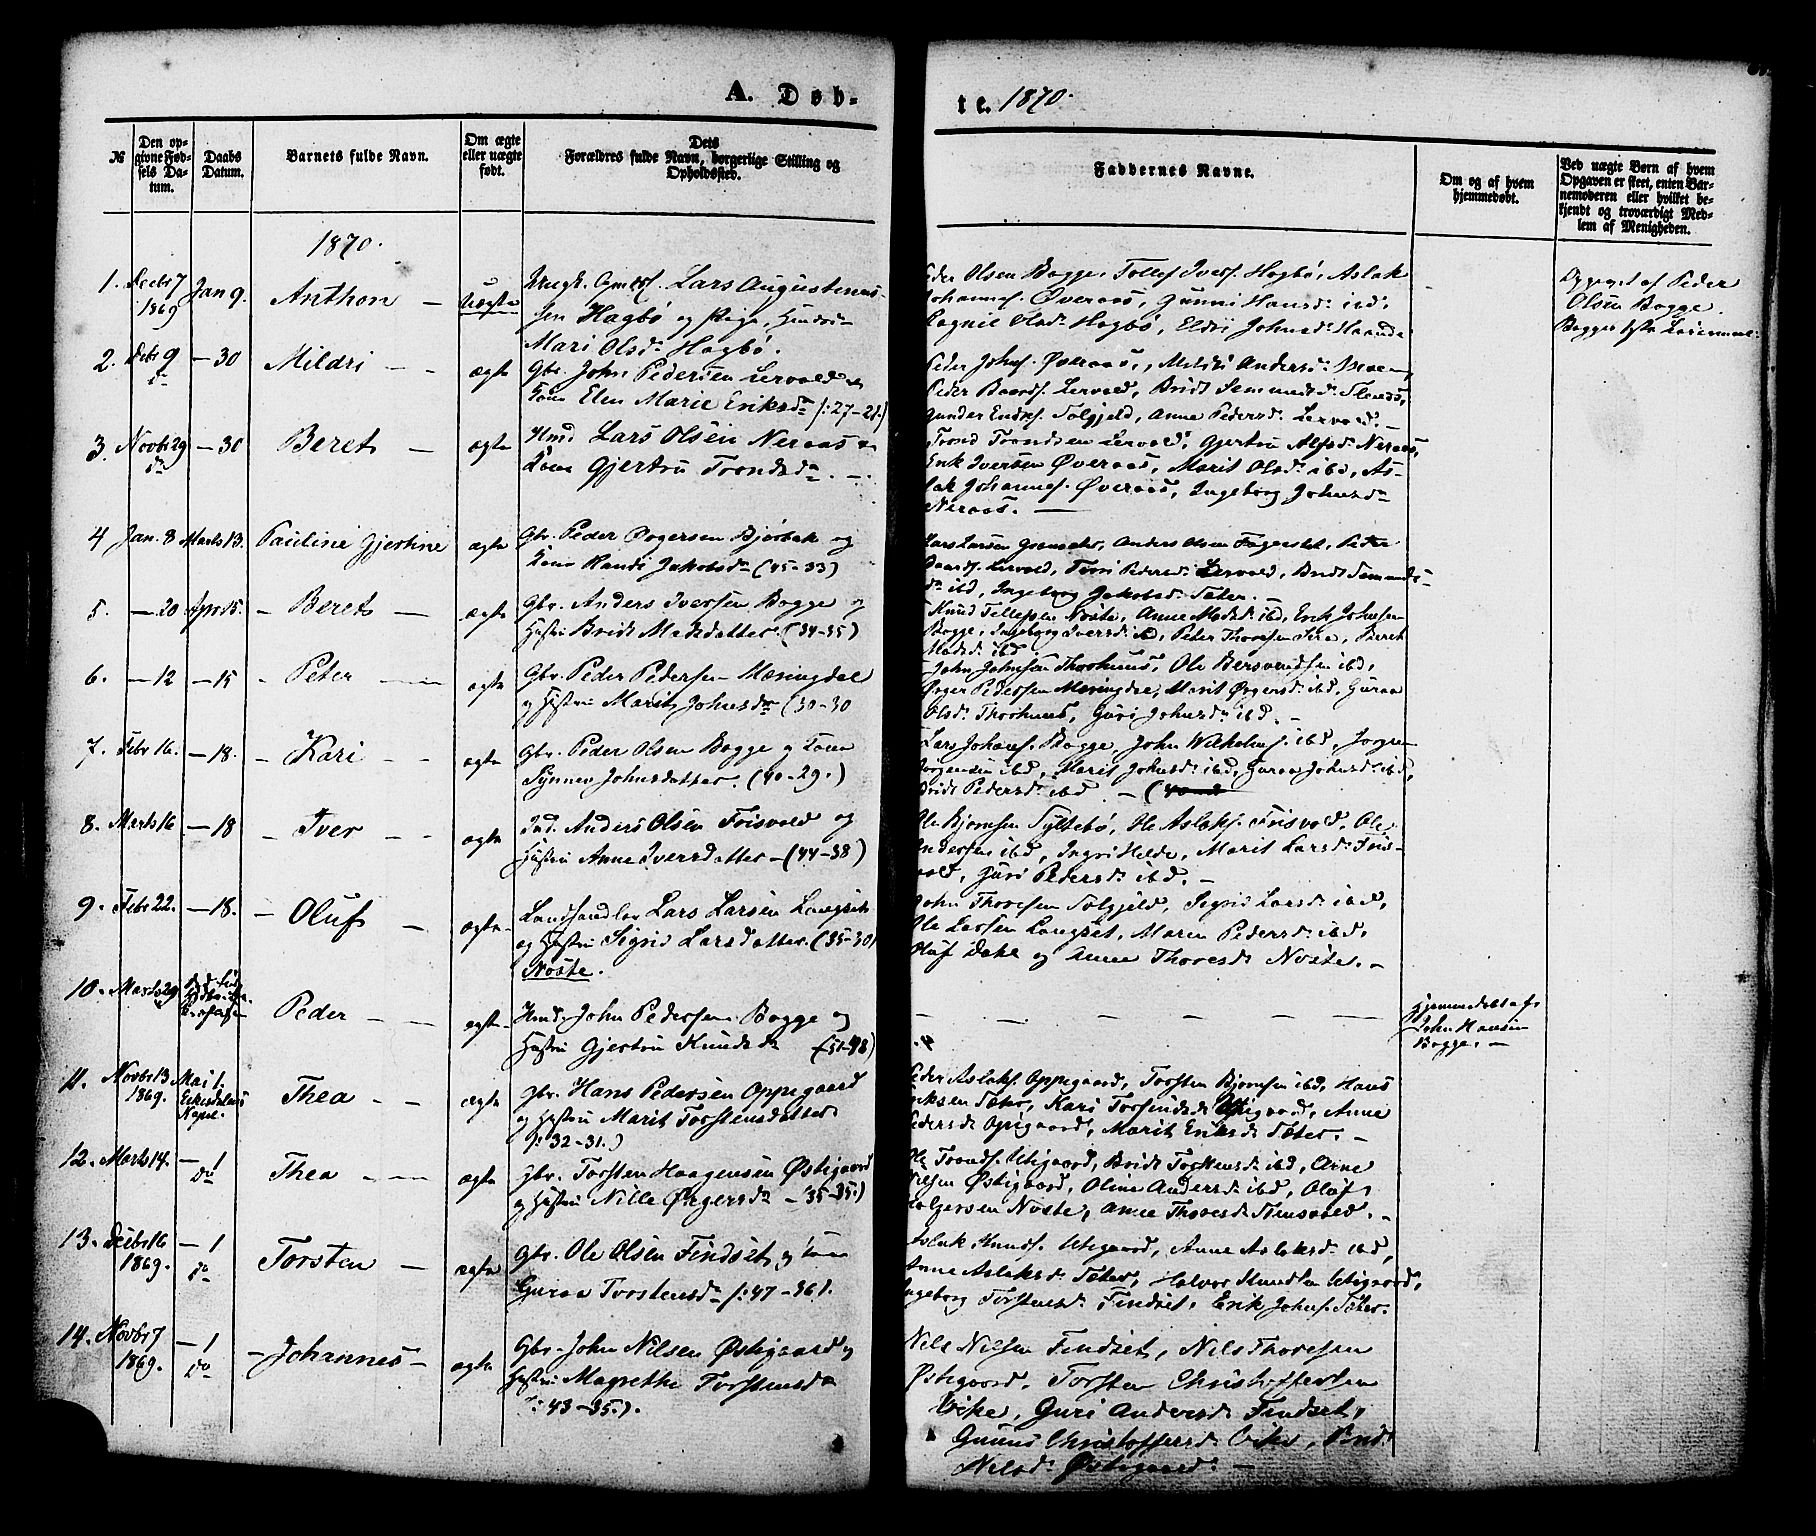 A. Døb-
te. 1870.
№
Den op-
givne Fød-
sels Da-
tum.
Daabs
Datum.
Barnets fulde Navn.
Om ægte
eller uægte
født.
Dets
Forældres fulde Navn, borgerlige Stilling og
Opholdssted.
Faddernes Navne.
Om og af hvem
hjemmedøbt.
Ved uægte Børn af hvem
Opgaven er skeet, enten Bar-
nemoderen eller hvilket be-
kjendt og troværdigt Med-
lem af Menigheden.
1870.
1. Decbr 7 1869 Jan 9. Anthon — Uægte
Lars Augustinus-
sen Hagbø og Pige
Mari Olsdr Hagbø.
Olsen Bogge, Tollef Ivers. Hagbø, Aslak
Johannes. Øveraas, Gunni Hansdr ibd.
Ragnil Olsdr Hagbø, Eldri Johnsdr
Opgivet af Peder
Olsen Bogge.
Bogge
2. Debr 9 do — 30 Mildri — ægte
Gbr. John Pedersen Lervold og
Kone Elen Marie Eriksdr /: 27-21 :/
Peder Johns. Øveraas, Mildri Andersdr
Peder Baards. Lervold, Bridt Semundsdr
Gunder Endres. Solgjeld, Anne Pedersdr Lervold. —
3. Novbr 29 do — 30 Beret — ægte
Hmd Lars Olsen Neraas og
Kone Gjertru Trondsdr. —
Trond Trondsen Lervold, Gjertru Alfsdr Neraas,
Erik Iversen Øveraas, Marit Olsdr ibd, As-
lak Johannes. Øveraas, Ingeborg Johnsdr
Neraas. —
4 Jan. 8 Marts 13. Pauline Gjertine ægte
Gbr. Peder Ørgersen Bjørbæk og
Kone Randi Jakobsdr (45-33)
Lars Larsen Anders Olsen Fagerslet, Peder
Baards. Lervold, Pedersdr Lervold, Bridt Semunds-
dr ibd, Ingeborg Jakobsdr Sæter. —
5. — 20 Apr 15. — Beret — ægte
Gbr. Anders Iversen Bogge og
Hustru Bridt Madsdatter. (34-35)
Knud Tellefsen Nøste, Anne Madsdr ibd, Erik Johnsen
Bogge, Ingeborg Iversdr ibd, Peter Thoresen Beret
Madsdr ibd
6. — 12 — 15 — Peter — ægte
Gbr. Peder Pedersen Meringdal
og Hustru Marit Johnsdr (30-30
John Johnsen Thorhuus, Ole Bersvendsen ibd,
Ørger Pedersen Meringdal, Marit Ørgersdr ibd, Guraa
Olsdr Thorhuus, Guri Johnsdr ibd. —
7. Febr 16. — 18. — Kari — ægte
Gbr. Peder Olsen Bogge og Kone
Synnev Johnsdatter. (40-29.)
Lars Johans. Bogge, John Wilhelms. ibd, Jørgen
Jørgensen ibd, Marit Johnsdr ibd, Guraa Johnsdr ibd,
Bridt Pedersdr ibd. —
8. Marts 16 — 18 — Iver — ægte
Ind. Anders Olsen Frisvold og
Hustru Anne Iversdatter — (44-38)
Ole Bjørnsen Syltebø, Ole Aslaks. Frisvold, Ole
Andersen ibd, Ingri Hilde, Marit Larsdr Fris-
vold, Guri Pedersdr ibd. —
9. Febr 22. — 18. — Oluf — ægte
Landhandler Lars Larsen Langset
og Hustru Sigrid Larsdatter. (35-30)
Nøste.
John Thoresen Solgjeld, Sigrid Larsdr ibd,
Ole Larsen Langset, Maren Pedersdr ibd,
Oluf og Anne Thoresdr Nøste. —
10. Marts 29 Peder — ægte
Hmd. John Pedersen Bogge og
Hustru Gjertru Knudsdr (51-48)
Hjemmedøbt af
John Hansen
Bogge. —
11. Novbr 13 1869. Mai 1. Eikisdalens Kapel. Thea — ægte
Gbr. Hans Pedersen Oppigaard
og Hustru Marit Torstensdatter
/: 32-31.)
Peder Aslaks. Oppigaard, Torsten Bjørnsen ibd, Hans
Eriksen Sæter, Kari Torfindsdr Utigaard, Anne
Pedersdr Opigaard, Marit Eriksdr Sæter. —
12. Marts 14. — 1 do Thea — ægte
Gbr. Torsten Haagensen Østigaard
og Hustru Nille Ørgersdr — 35-35.)
Ole Tronds. Utigaard, Bridt Torstensdr ibd, Arne
Nilsen Østigaard, Oline Andersdr ibd, Oluf
Holgersen Nøste, Anne Thoresdr —
13. Decbr 16 1869. — 1 do Torsten — ægte
Gbr. Ole Olsen Findset og Kone
Guraa Torstensdr /: 47-36).
Aslak Knuds. Utigaard, Anne Aslaksdr ibd,
Anne Aslaksdr Sæter, Halvor Knudsen Utigaard,
Ingeborg Torstensdr Findset, Erik Johns. Sæter.
14. Novbr 7 1869. — 1 do — Johannes — ægte
Gbr. John Nilsen Østigaard og
Hustru Magrethe Torstensdr
/: 43-35.).
Nils Nilsen Findset, Nils Thoresen
Østigaard, Torsten Christoffersen
Vike, Guri Andersdr Findset,
Christoffersdr Vike,
Nilsdr Østigaard. —